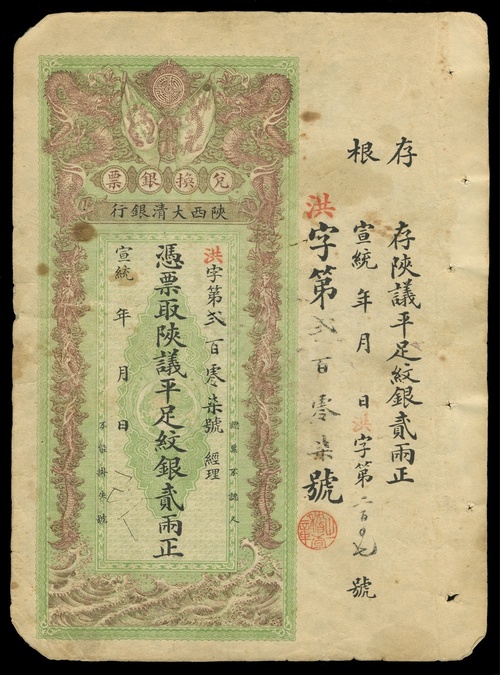 存根
存陝議平足紋銀貳兩正
宣統 年 月 日 洪字第二百〇七號
洪字第弍百零柒號
兌換銀票
陝西大清銀行
洪字第弍百零柒號 經理
憑票取陝議平足紋銀貳兩正
宣統 年 月 日
認票不認人
不管掛失號